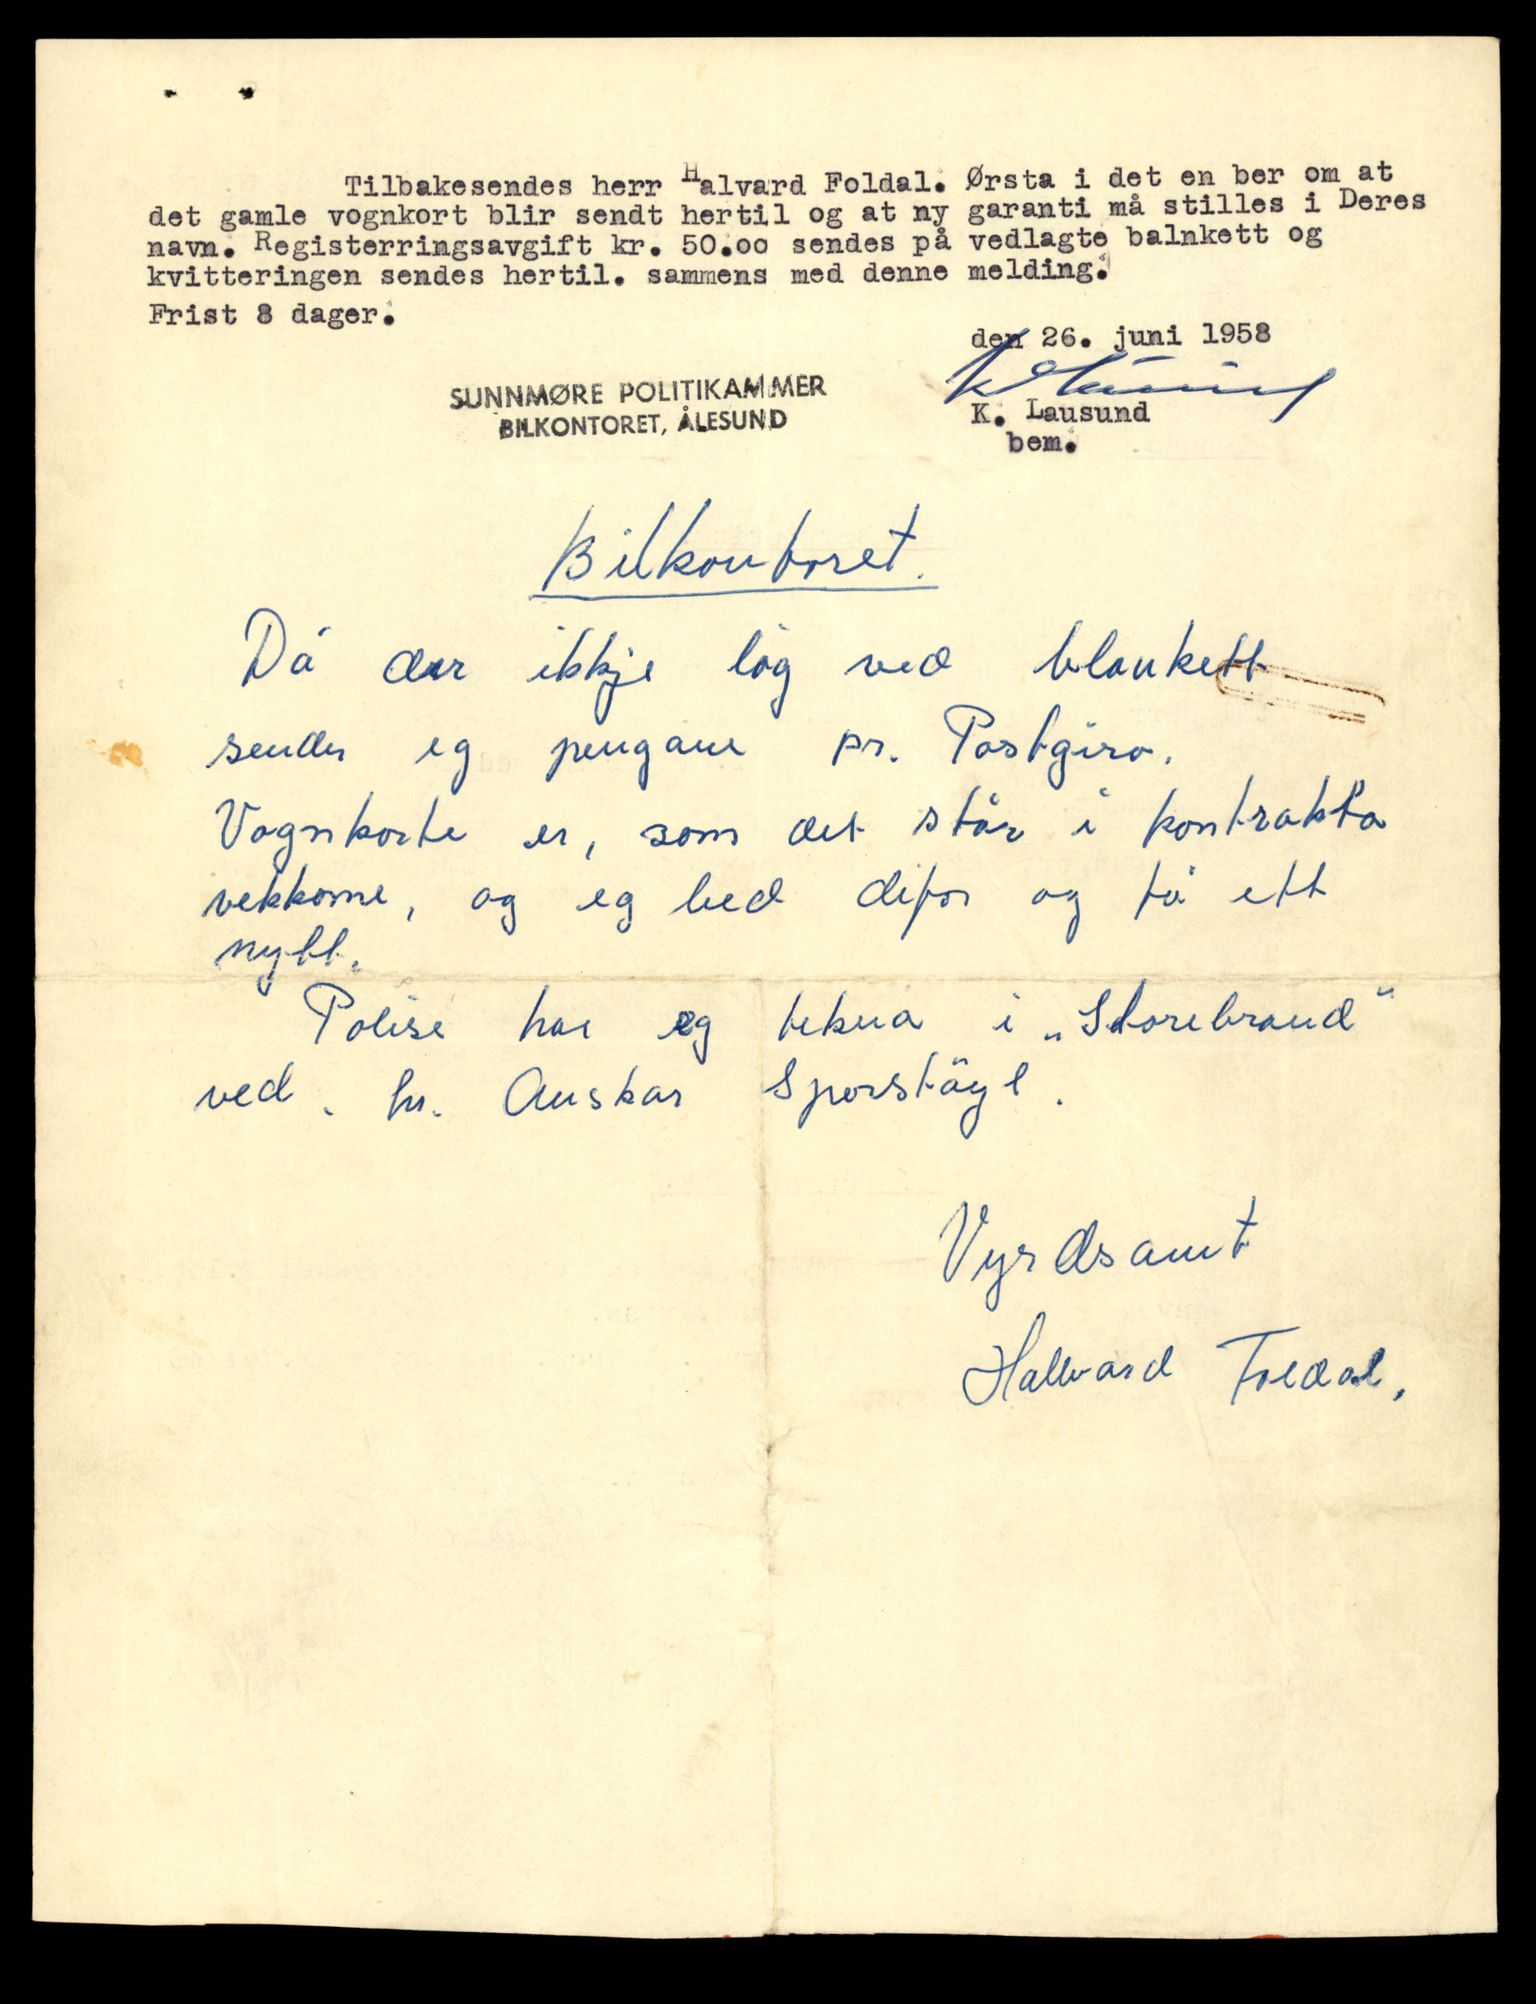 Tilbakesendes herr Halvard Foldal. Ørsta i det en ber om at
det gamle vognkort blir sendt hertil og at ny garanti må stilles i Deres
navn. Registerringsavgift kr. 50.oo sendes på vedlagte balnkett og
kvitteringen sendes hertil. sammens med denne melding.
Frist 8 dager.
den 26. juni 1958
SUNNMØRE POLITIKAMMER
BILKONTORET, ÅLESUND
K. Lausund
bem.
Bilkontoret.
Då der ikkje låg ved blankett
sender eg pengane pr. Postgiro.
Vognkorte er, som det står i kontrakta
vekkome, og eg bed difor og få ett
nytt.
Polise har eg tekna i „Storebrand"
ved. hr. Anskar Sporstøyl.
Vyrdsamt
Hallvard Foldal.